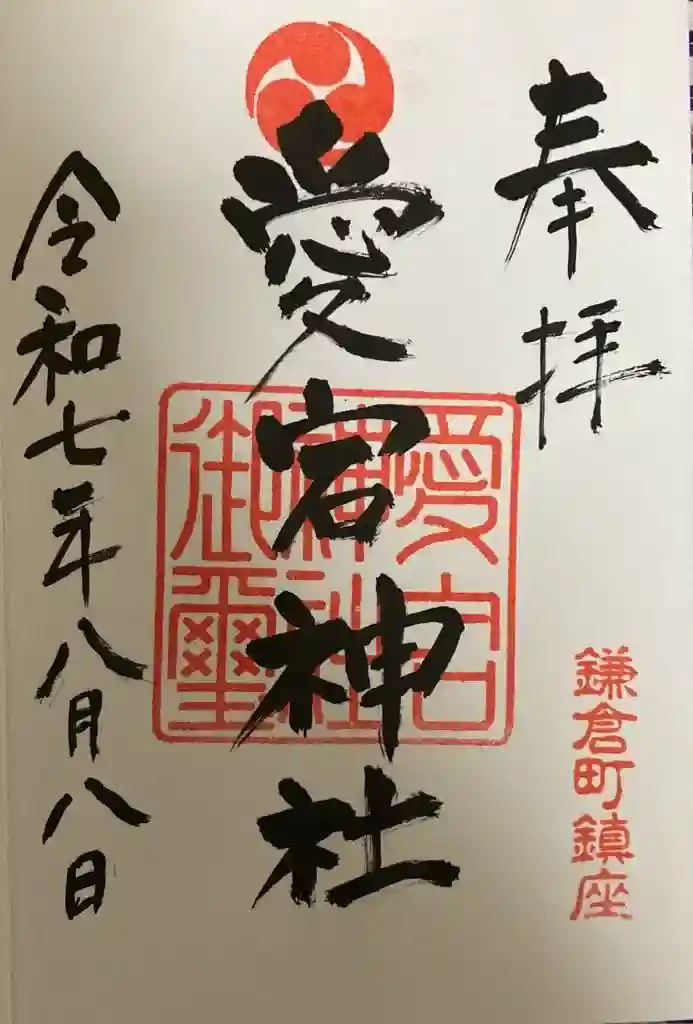 奉拝
鎌倉町鎮座
愛宕神社
愛宕
神社
御璽
令和七年八月八日